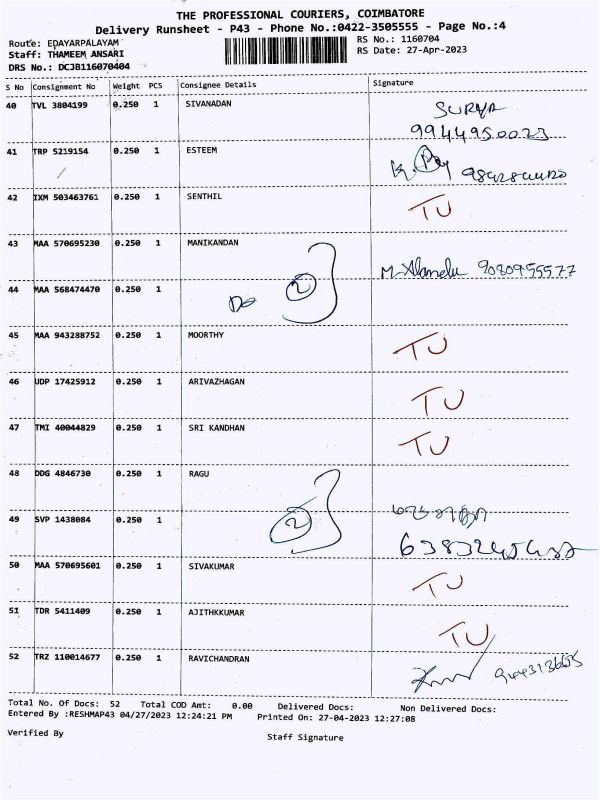 THE PROFESSIONAL COURIERS, COIMBATORE
Delivery Runsheet - P43 - Phone No.:0422-3505555 - Page No.:4
Route: EDAYARPALAYAM RS No.: 1160704
Staff: THAMEEM ANSARI RS Date: 27-Apr-2023
DRS No.: DCJB116070404
S No Consignment No Weight PCS Consignee Details Signature
40 TVL 3804199 0.250 1 SIVANADAN SURYA
9944950023
41 TRP 5219154 0.250 1 ESTEEM
42 IXM 503463761 0.250 1 SENTHIL TU
43 MAA 570695230 0.250 1 MANIKANDAN
2 M. Alamelu 9080955577
44 MAA 568474470 0.250 1 Do
45 MAA 943288752 0.250 1 MOORTHY TU
46 UDP 17425912 0.250 1 ARIVAZHAGAN TU
47 TMI 40044829 0.250 1 SRI KANDHAN TU
48 DDG 4846730 0.250 1 RAGU
49 SVP 1438084 0.250 1 2
50 MAA 570695601 0.250 1 SIVAKUMAR TU
51 TDR 5411409 0.250 1 AJITHKKUMAR TU
52 TRZ 110014677 0.250 1 RAVICHANDRAN
Total No. Of Docs: 52 Total COD Amt: 0.00 Delivered Docs: Non Delivered Docs:
Entered By :RESHMAP43 04/27/2023 12:24:21 PM Printed On: 27-04-2023 12:27:08
Verified By Staff Signature